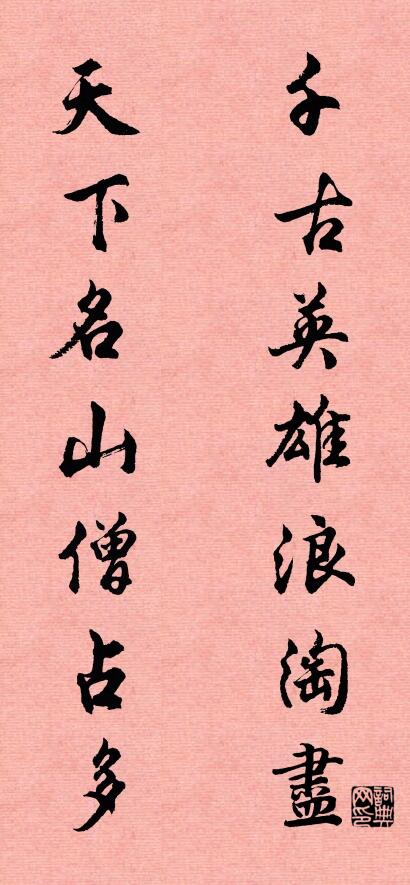 千古英雄浪淘盡
天下名山僧占多
詞典網印